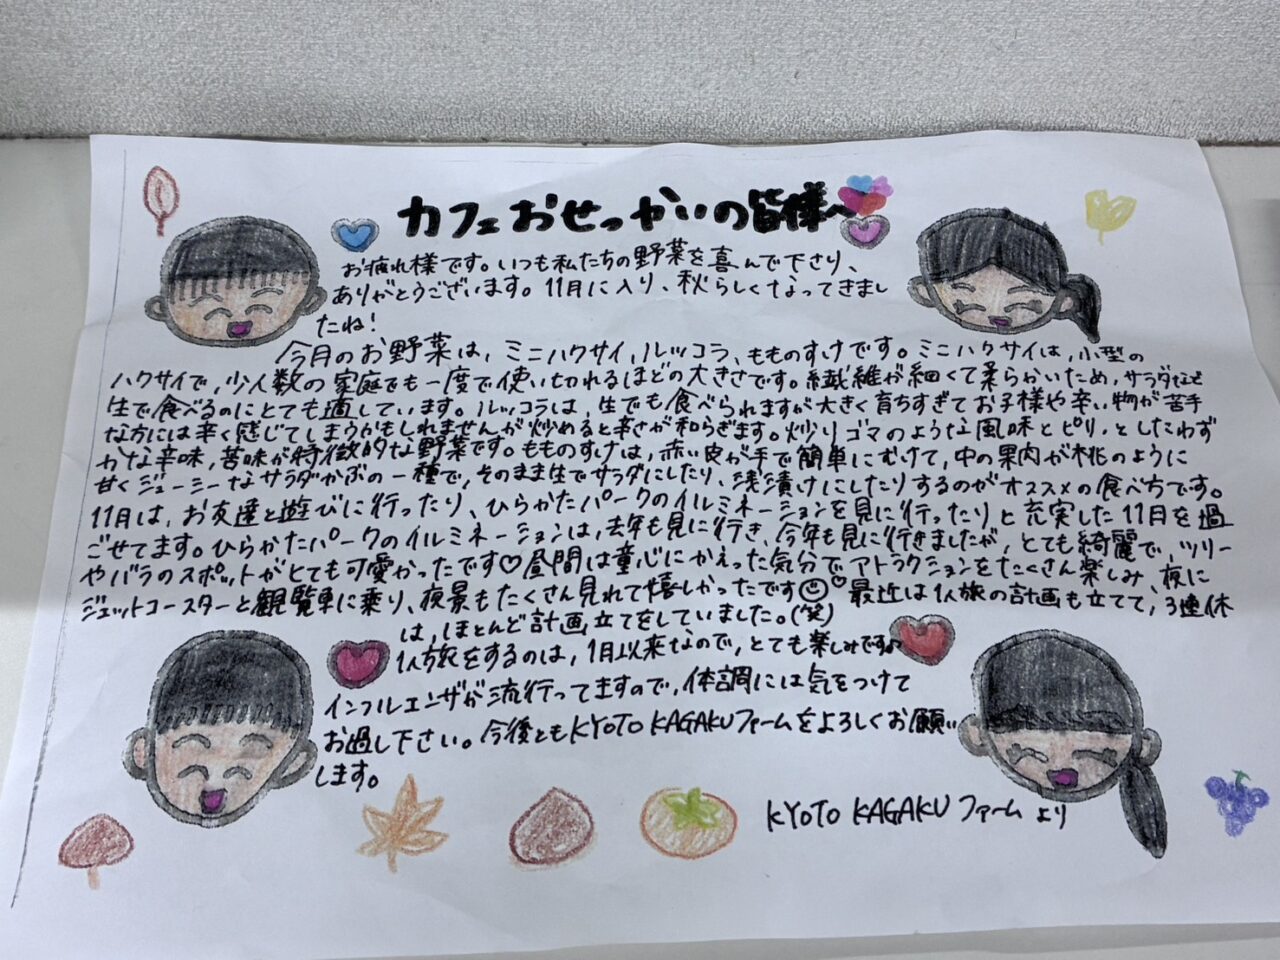 カフェおせっかいの皆様へ
お疲れ様です。いつも私たちの野菜を喜んで下さり、
ありがとうございます。11月に入り、秋らしくなってきまし
たね！
今月のお野菜は、ミニハクサイ、ルッコラ、もものすけです。ミニハクサイは、小型の
ハクサイで、少人数の家庭でも一度で使い切れるほどの大きさです。繊維が細くて柔らかいため、サラダなど
生で食べるのにとても適しています。ルッコラは、生でも食べられますが大きく育ちすぎてお子様や辛い物が苦手
な方には辛く感じてしまうかもしれませんが炒めると辛さが和らぎます。炒りゴマのような風味とピリッとしたわず
かな辛味、苦味が特徴的な野菜です。もものすけは、赤い皮が手で簡単にむけて、中の果肉が桃のように
甘くジューシーなサラダかぶの一種で、そのまま生でサラダにしたり、浅漬けにしたりするのがオススメの食べ方です。
11月は、お友達と遊びに行ったり、ひらかたパークのイルミネーションを見に行ったりと充実した11月を過
ごせてます。ひらかたパークのイルミネーションは、去年も見に行き、今年も見に行きましたが、とても綺麗で、ツリー
やバラのスポットがとても可愛かったです♡昼間は童心にかえった気分でアトラクションをたくさん楽しみ、夜に
ジェットコースターと観覧車に乗り、夜景もたくさん見れて嬉しかったです☺最近は1人旅の計画も立てて、3連休
は、ほとんど計画立てをしていました。(笑)
1人旅をするのは、1月以来なので、とても楽しみです♪
インフルエンザが流行ってますので、体調には気をつけて
お過し下さい。今後ともKYOTO KAGAKUファームをよろしくお願い
します。
KYOTO KAGAKU ファーム より